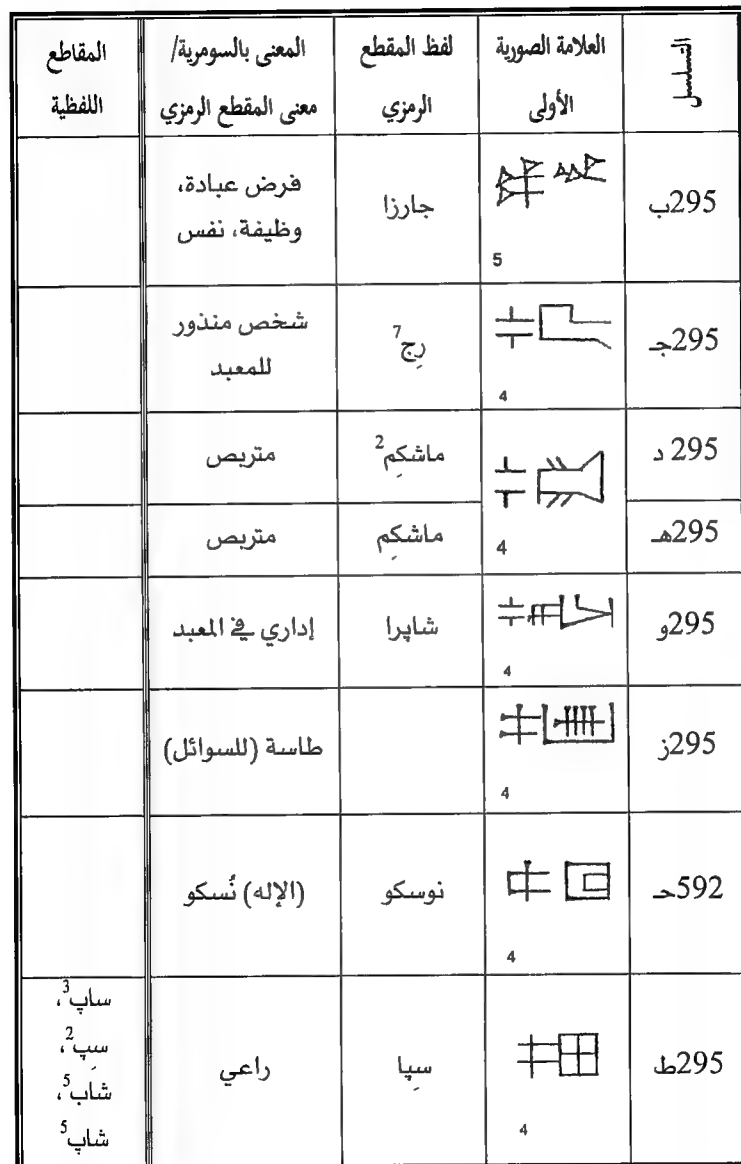 التسلسل
العلامة الصورية الأولى
لفظ المقطع الرمزي
المعنى بالسومرية/ معنى المقطع الرمزي
المقاطع اللفظية
295ب
5
جارزا
فرض عبادة،
وظيفة، نفس
295جـ
4
رِج7
شخص منذور
للمعبد
295 د
ماشكِم2
متربص
295هـ
4
ماشكِم
متربص
295و
4
شاپرا
إداري في المعبد
295ز
4
طاسة (للسوائل)
592حـ
4
نوسكو
(الإله) نُسكو
295ط
4
سِپا
راعي
ساپ3،
سِپ2،
شاب5،
شاپ5